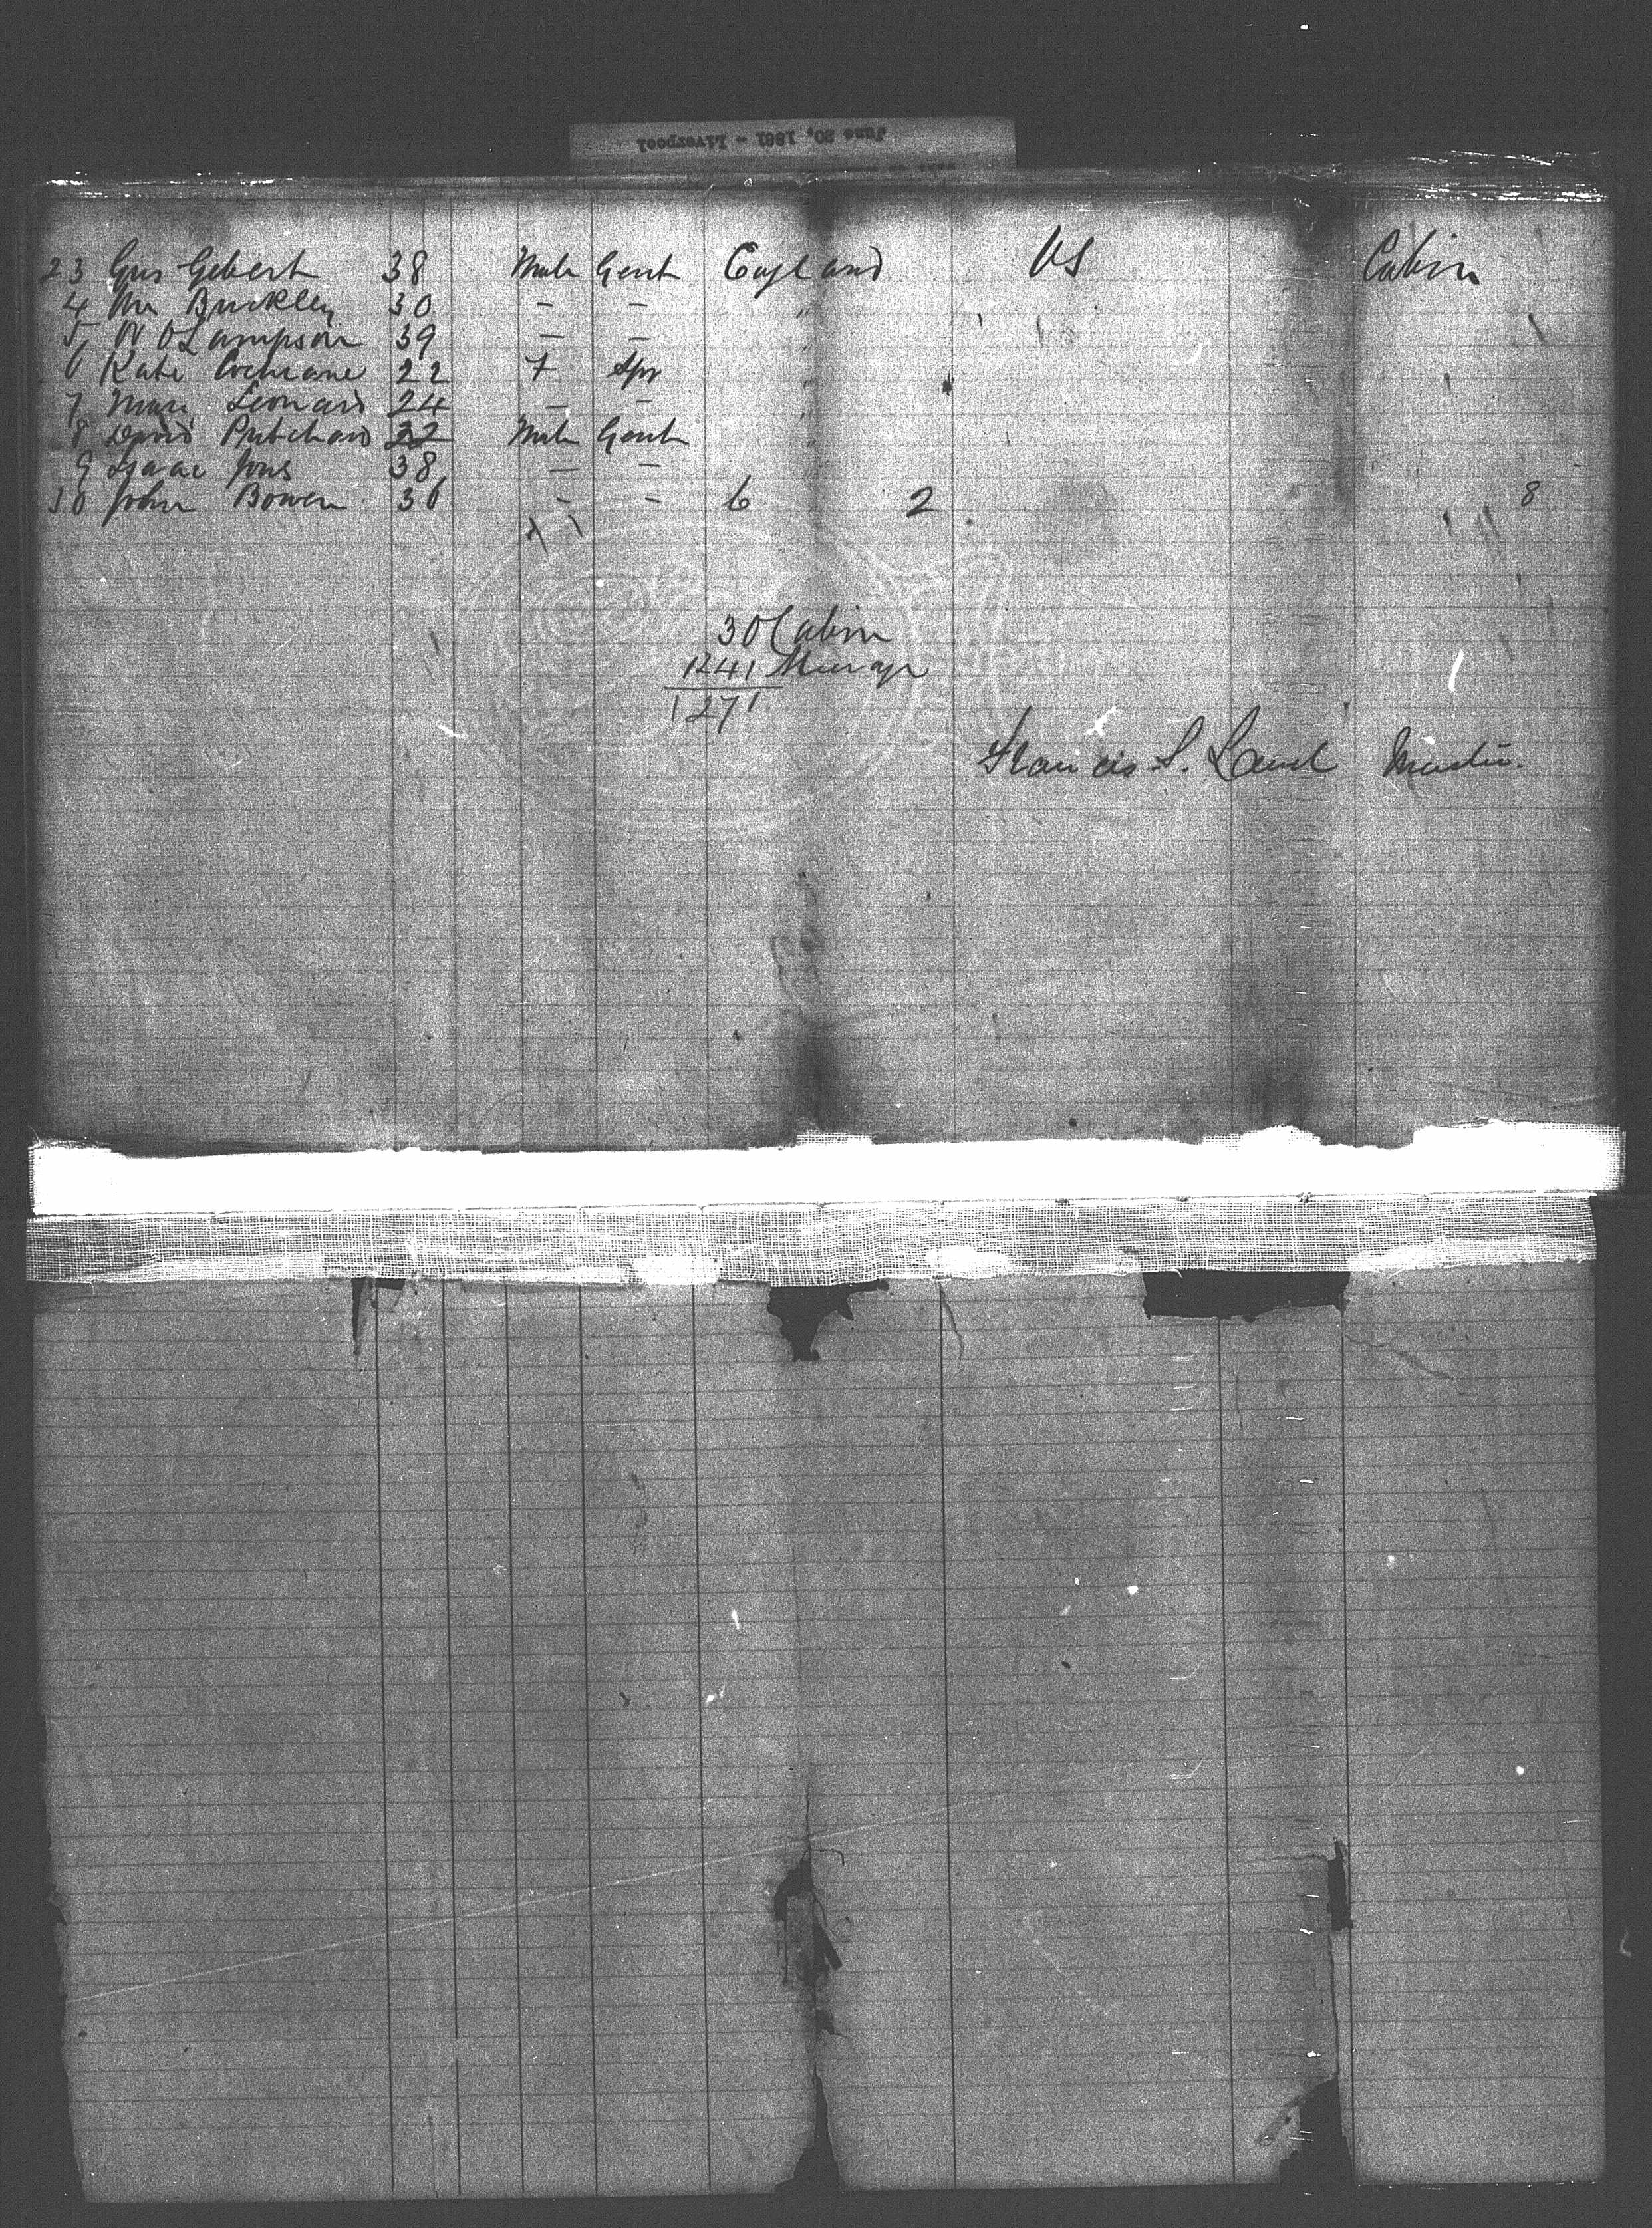 June 20, 1881 - Liverpool
23 Gus Gebert 38 Male Gent England US Cabin
4 Mr Buckley 30 - - "
5 W O Lampson 39 - - "
6 Kate Cochrane 22 f Spr "
7 Mary Leonard 24 - - "
8 David Pritchard 32 Male Gent "
9 Isaac Jons 38 - - "
30 John Bowen 36 - - 6 2 8
30 Cabin
1241 Steerage
1271
Francis S. Land Master.